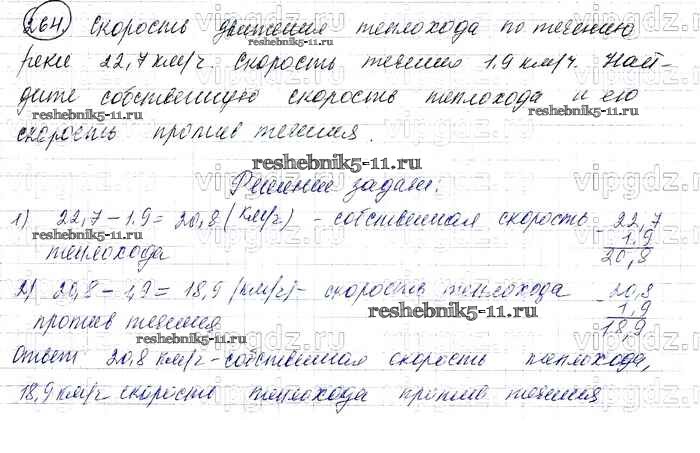 264. Скорость движения теплохода по течению
реки 22,7 км/ч. Скорость течения 1,9 км/ч. Най-
дите собственную скорость теплохода и его
reshebnik5-11.ru
скорость против течения.
reshebnik5-11.ru
Решение задачи:
1) 22,7 - 1,9 = 20,8 (км/ч) - собственная скорость 22,7
теплохода - 1,9
20,8
2) 20,8 - 1,9 = 18,9 (км/ч) - скорость теплохода - 20,8
против течения 1,9
18,9
Ответ 20,8 км/ч - собственная скорость теплохода,
18,9 км/ч скорость теплохода против течения
reshebnik5-11.ru
reshebnik5-11.ru
reshebnik5-11.ru
vipgdz.ru
vipgdz.ru
vipgdz.ru